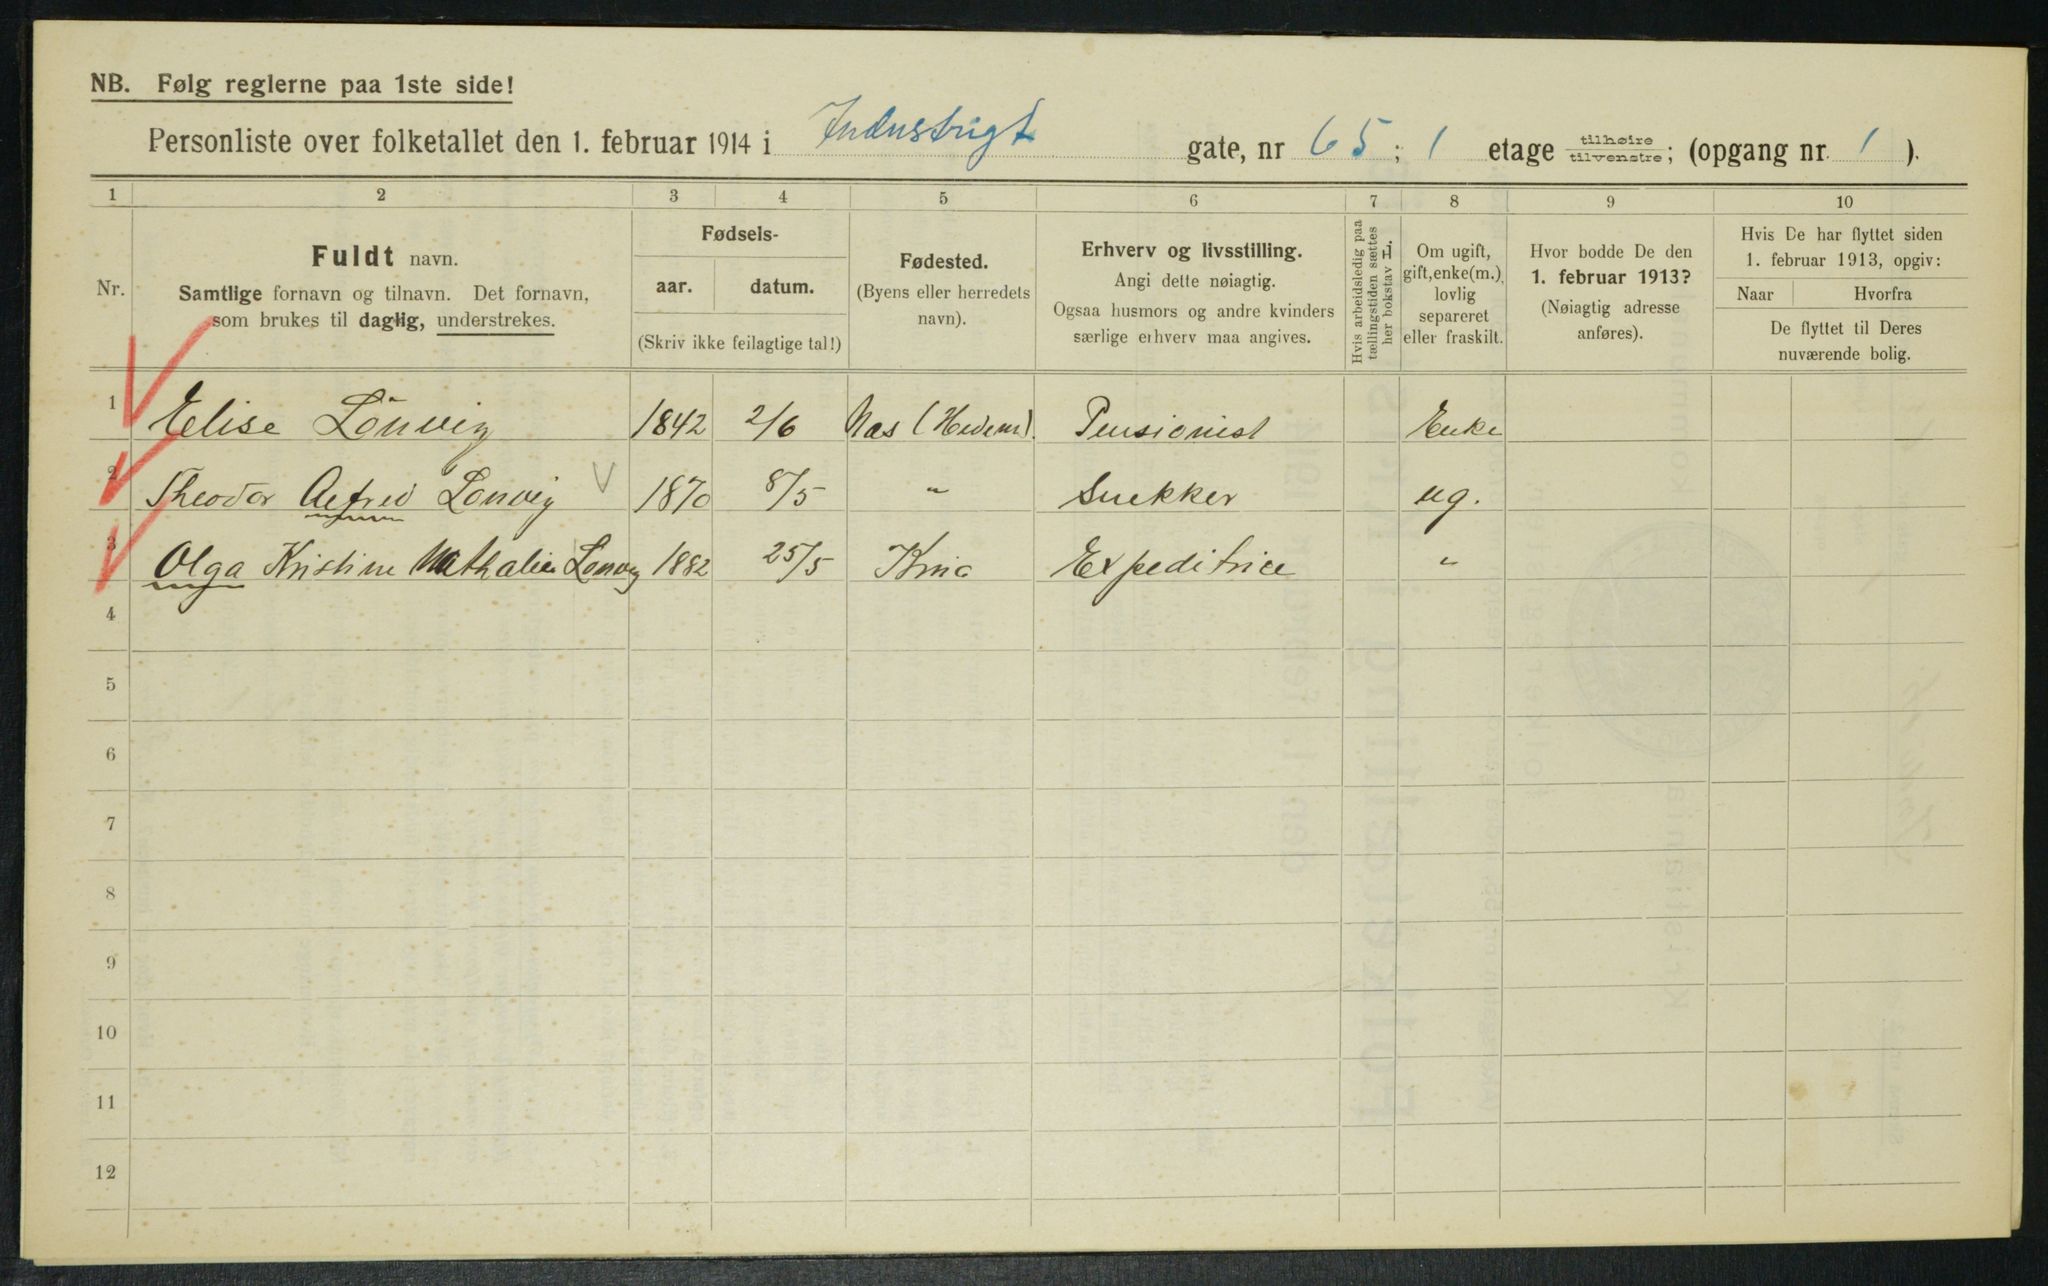 NB. Følg reglerne paa 1ste side!
Personliste over folketallet den 1. februar 1914 i Industrigt gate, nr 65; 1 etage tilhøire tilvenstre; (opgang nr. 1 ).
1 2 3 4 5 6 7 8 9 10
Nr.
Fuldt navn.
Samtlige fornavn og tilnavn. Det fornavn,
som brukes til daglig, understrekes.
Fødsels-
aar. datum.
(Skriv ikke feilagtige tal!)
Fødested.
(Byens eller herredets
navn).
Erhverv og livsstilling.
Angi dette nøiagtig.
Ogsaa husmors og andre kvinders
særlige erhverv maa angives.
Hvis arbeidsledig paa
tællingstiden sættes
her bokstav L.
Om ugift,
gift, enke(m.),
lovlig
separeret
eller fraskilt.
Hvor bodde De den
1. februar 1913?
(Nøiagtig adresse
anføres).
Hvis De har flyttet siden
1. februar 1913, opgiv:
Naar Hvorfra
De flyttet til Deres
nuværende bolig.
1 Elise Lönvig 1842 2/6 Nas (Hedem). Pensionist Enke
2 Theodor Alfred Lonvig 1870 8/5 " Snekker ug.
3 Olga Kristine Nathalie Lonvig 1882 25/5 Krna Expeditrice "
4
5
6
7
8
9
10
11
12